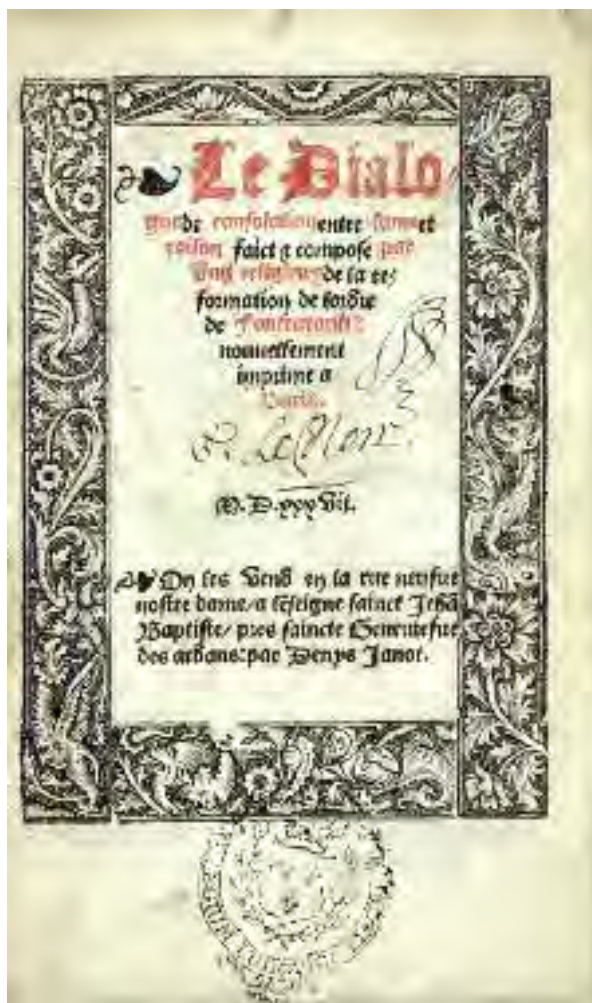 Le Dialo
gue de consolation entre lame et
raison faict et compose par
Vng religieux de la re/
formation de lordre
de Fonteurault:
nouuellement
imprime a
Paris.
Le Noir.
M.D.xxxVii.
On les Vend en la rue neufue
nostre dame/a lenseigne sainct Jehã
Baptiste/ pres saincte Geneuiefue
des ardans: par Denys Janot.